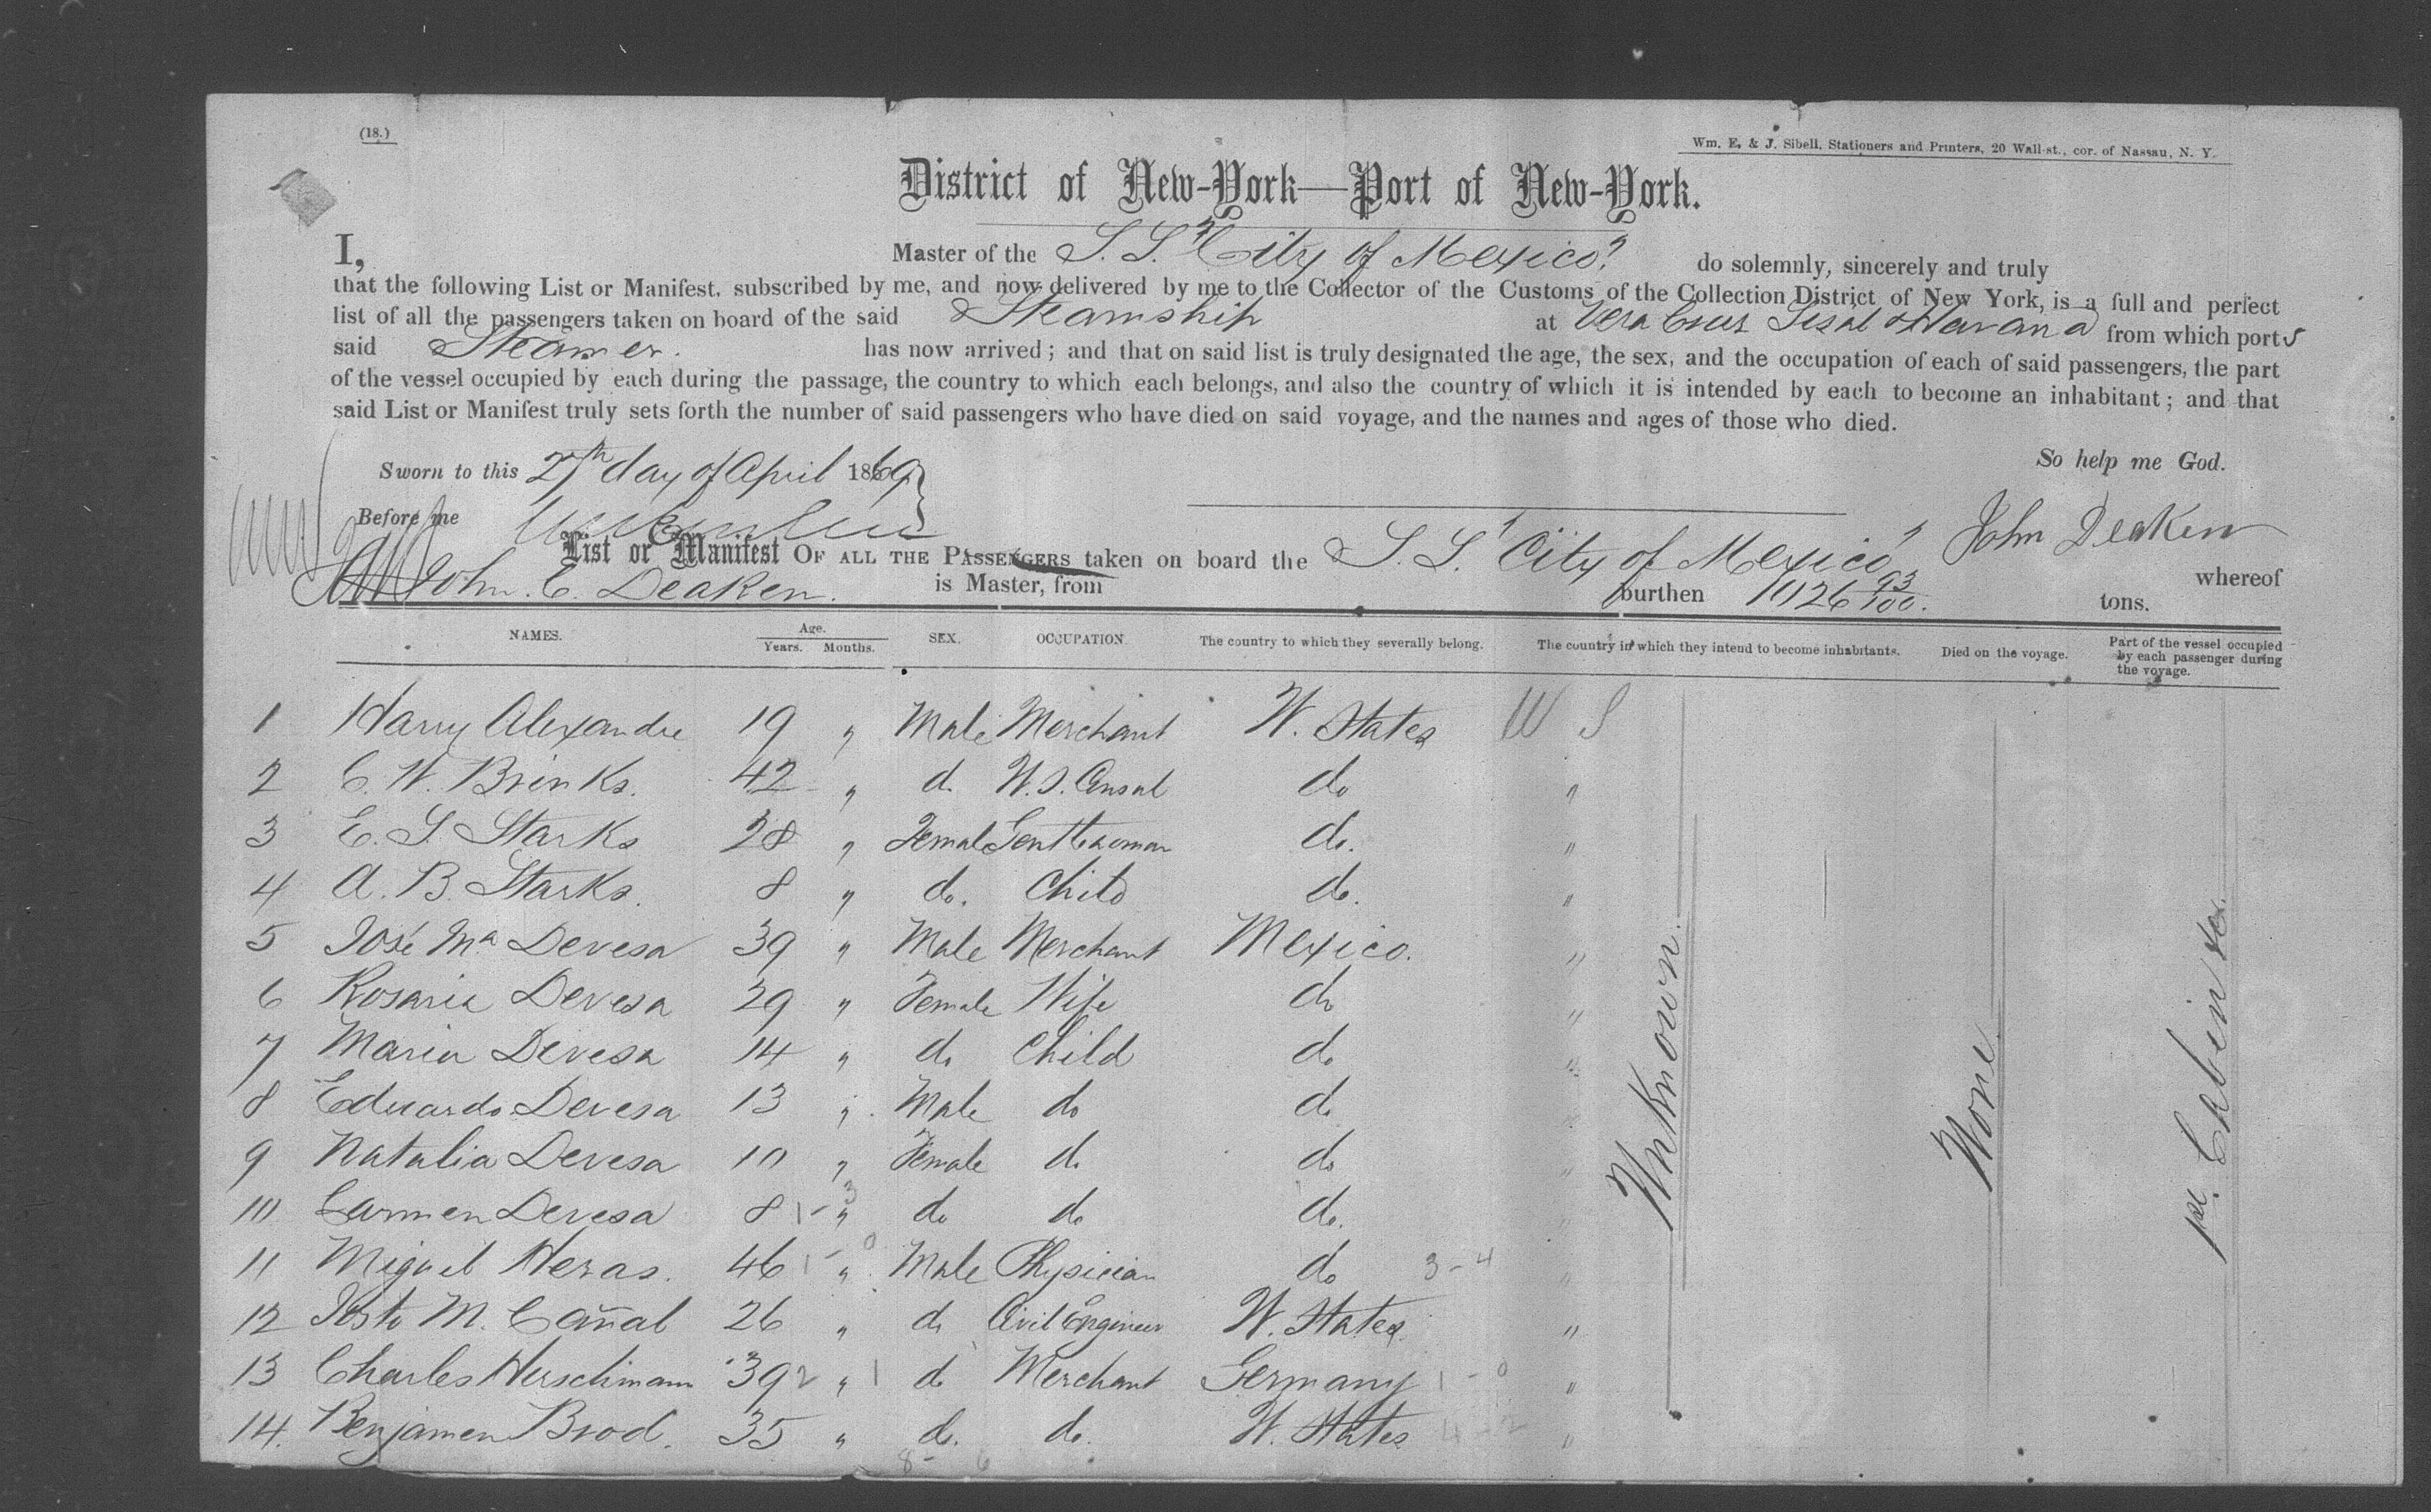 (18.)
Wm. E. & J. Sibell, Stationers and Printers, 20 Wall-st., cor. of Nassau, N. Y.
District of New-York—Port of New-York.
I, Master of the S. S. "City of Mexico" do solemnly, sincerely and truly
that the following List or Manifest, subscribed by me, and now delivered by me to the Collector of the Customs of the Collection District of New York, is a full and perfect
list of all the passengers taken on board of the said Steamship at Vera Cruz Sisal & Havana from which ports
said Steamer. has now arrived; and that on said list is truly designated the age, the sex, and the occupation of each of said passengers, the part
of the vessel occupied by each during the passage, the country to which each belongs, and also the country of which it is intended by each to become an inhabitant; and that
said List or Manifest truly sets forth the number of said passengers who have died on said voyage, and the names and ages of those who died.
So help me God.
Sworn to this 27th day of April 1869
Before me
John Deaken
List or Manifest OF ALL THE PASSENGERS taken on board the S. S. "City of Mexico" whereof
John. C. Deaken. is Master, from burthen 1026 93/100. tons.
NAMES. Age. Years. Months. SEX. OCCUPATION. The country to which they severally belong. The country in which they intend to become inhabitants. Died on the voyage. Part of the vessel occupied by each passenger during the voyage.
1 Harry Alexandre 19 " Male Merchant U. States U S
2 C. W. Brinks. 42 " do. U. S. Consul do "
3 E. S. Starks 28 " Female Gentlewoman do. "
4 A. B. Starks. 8 " do. Child do. "
5 José Ma Devesa 39 " Male Merchant Mexico. "
6 Rosaria Devesa 29 " Female Wife do "
7 Maria Devesa 14 " do Child do "
8 Eduardo Devesa 13 " Male do do "
9 Natalia Devesa 10 " Female do do "
10 Carmen Devesa 8 1-3 " do do do. "
11 Miguel Heras. 46 1-0 " Male Physician do 3-4 "
12 M. Cañal 26 " do Civil Engineer U. States. "
13 Charles Herschmann 39 2 " 1 do Merchant Germany 1-0 "
14. Benjamen Brod. 35 " do. do. U. States 4-2 "
8-6
Unknown.
None.
1st. Cabin